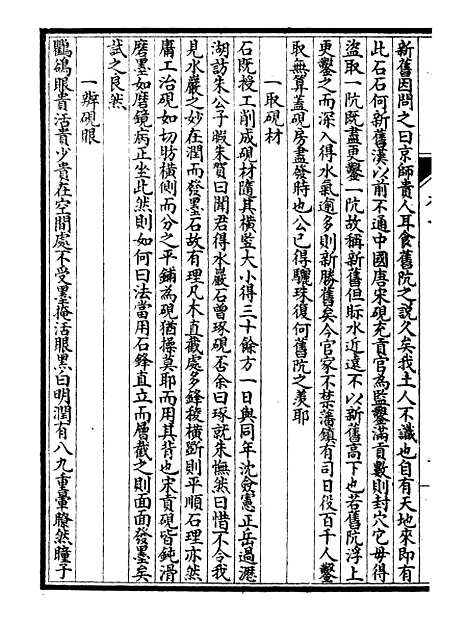 新舊因問之曰京師貴人耳食舊阬之說久矣我土人不識也自有天地來即有
此石石何新舊漢以前不通中國唐宋硯充貢官為監鑿滿貢數則封穴它毋得
盜取一阬既盡更鑿一阬故稱新舊但眎水近遠不以新舊高下也若舊阬浮上
更鑿之而深入得水氣逾多則新勝舊矣今官家不禁藩鎮有司日役百千人鑿
取無算蓋硯房盡發時也公已得驪珠復何舊阬之羨耶
一取硯材
石既授工削成硯材隨其橫豎大小得三十餘方一日與同年沈僉憲正岳過瀝
湖訪朱公子叚朱質曰聞君得水巖石曾琢硯否余曰琢就朱憮然曰惜不令我
見水巖之妙在潤而發墨石故有理凡木直截處多鋒稜橫斷則平順石理亦然
庸工治硯如切肪橫側而分之平鋪為硯猶操莫耶而用其背也宋貢硯皆鈍滑
磨墨如磨鏡病正坐此然則如何曰法當用石鋒直立而層截之則面面發墨矣
試之良然
一辨硯眼
鸜鵒眼貴活貴少貴在空閒處不受墨掩活眼黑白明潤有八九重暈瞭然瞳子